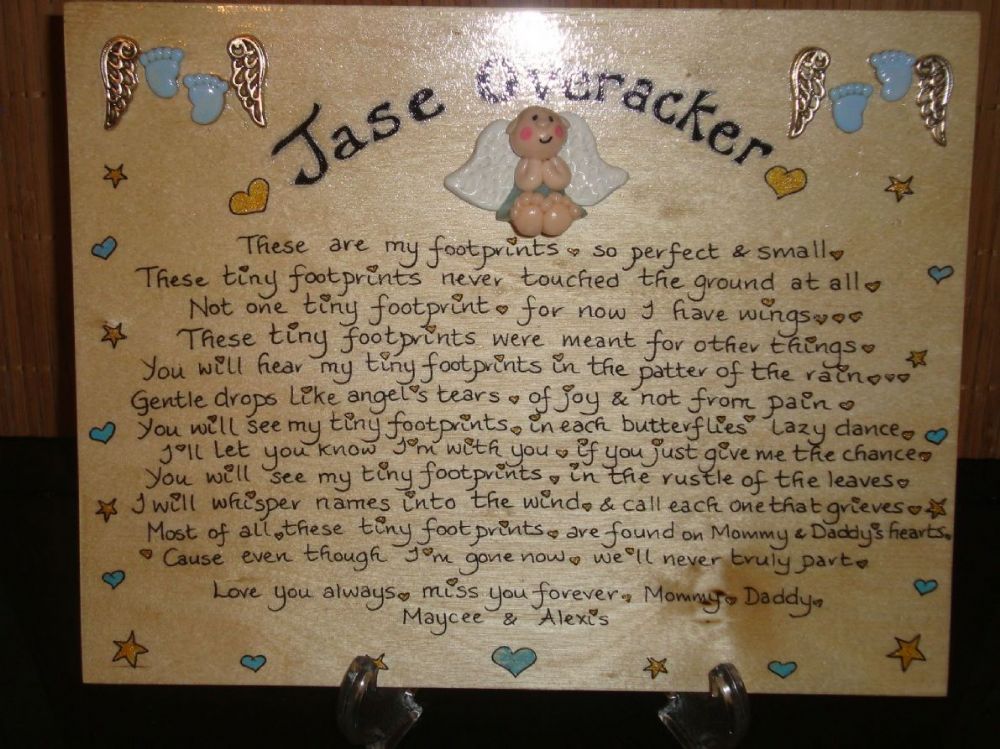 Jase Overacker
These are my footprints so perfect & small
These tiny footprints never touched the ground at all
Not one tiny footprint for now I have wings
These tiny footprints were meant for other things
You will hear my tiny footprints in the patter of the rain
Gentle drops like angel's tears of joy & not from pain
You will see my tiny footprints in each butterflies' lazy dance
I'll let you know I'm with you if you just give me the chance
You will see my tiny footprints in the rustle of the leaves
I will whisper names into the wind & call each one that grieves
Most of all these tiny footprints are found on Mommy & Daddy's hearts
Cause even though I'm gone now we'll never truly part
Love you always miss you forever Mommy Daddy
Maycee & Alexi's